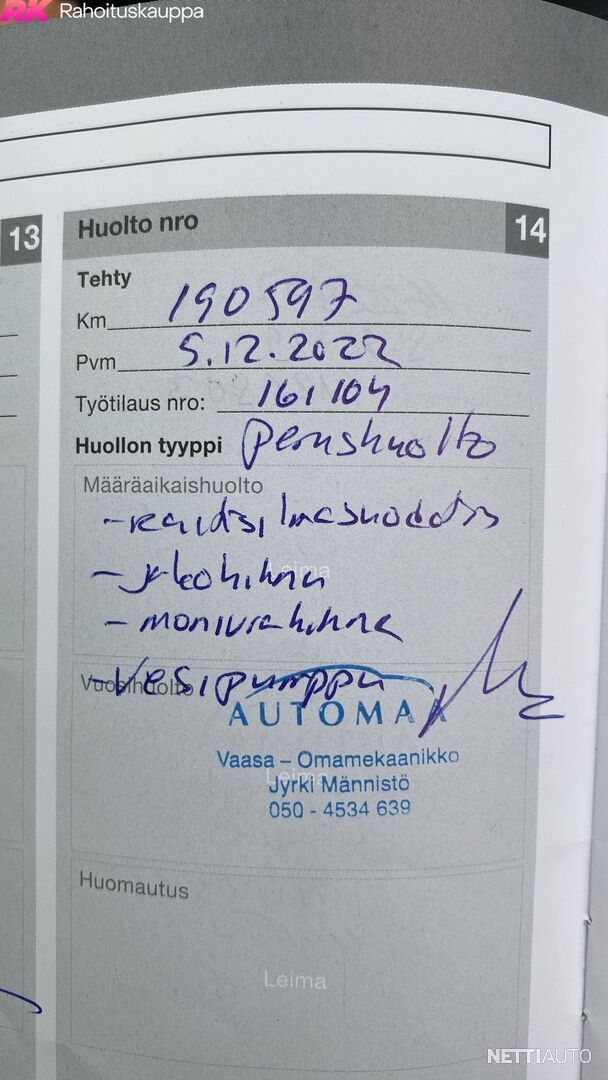 RK Rahoituskauppa
13
Huolto nro 14
Tehty
Km 190597
Pvm 5.12.2022
Työtilaus nro: 161104
Huollon tyyppi perushuolto
Määräaikaishuolto
- raitisilmasuodatin
Leima
- jakohihna
- moniurahihna
- vesipumppu
Vuosihuolto
AUTOMAA
Vaasa – Omamekaanikko
Leima
Jyrki Männistö
050 - 4534 639
Huomautus
Leima
NETTIAUTO